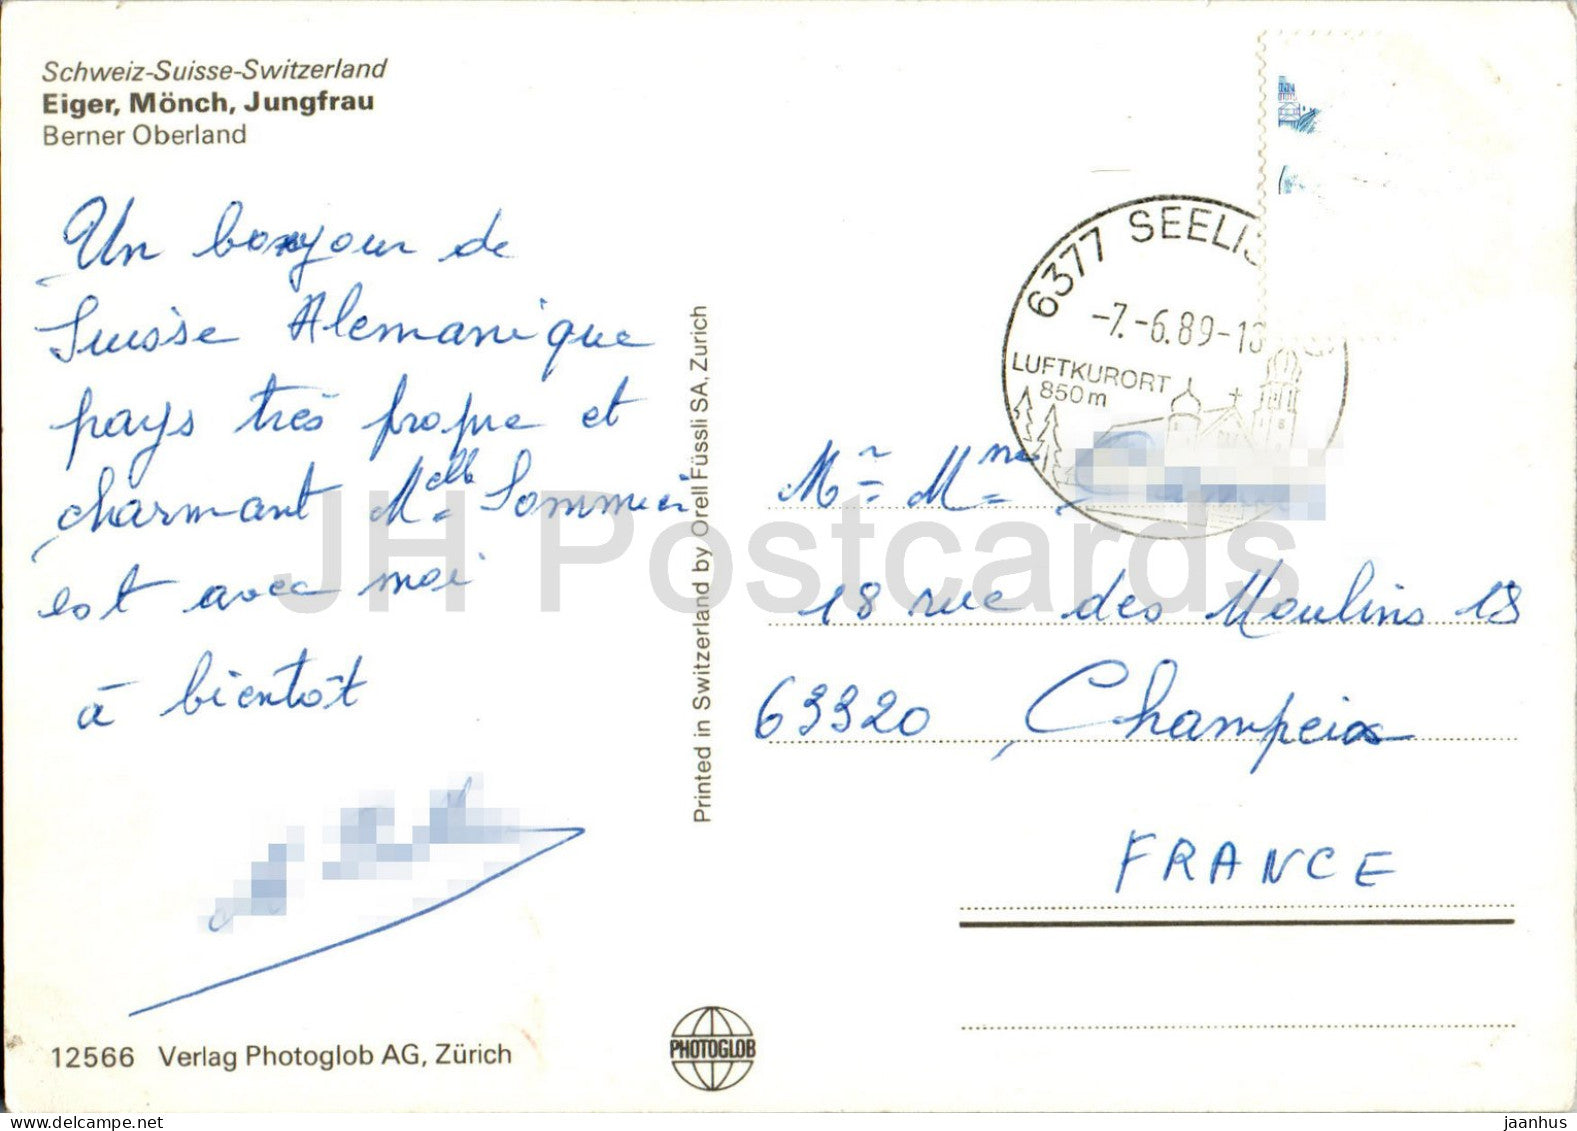 Schweiz-Suisse-Switzerland
Eiger, Mönch, Jungfrau
Berner Oberland
Un bonjour de
Suisse Alemanique
pays très propre et
charmant Melle Sommier
est avec moi
à bientôt
12566 Verlag Photoglob AG, Zürich
Printed in Switzerland by Orell Füssli SA, Zurich
PHOTOGLOB
6377 SEELIS
-7.-6.89-10
LUFTKURORT
850m
Mr Mme
18 rue des Moulins 18
63320 Champeix
FRANCE
JH Postcards
jaanhus